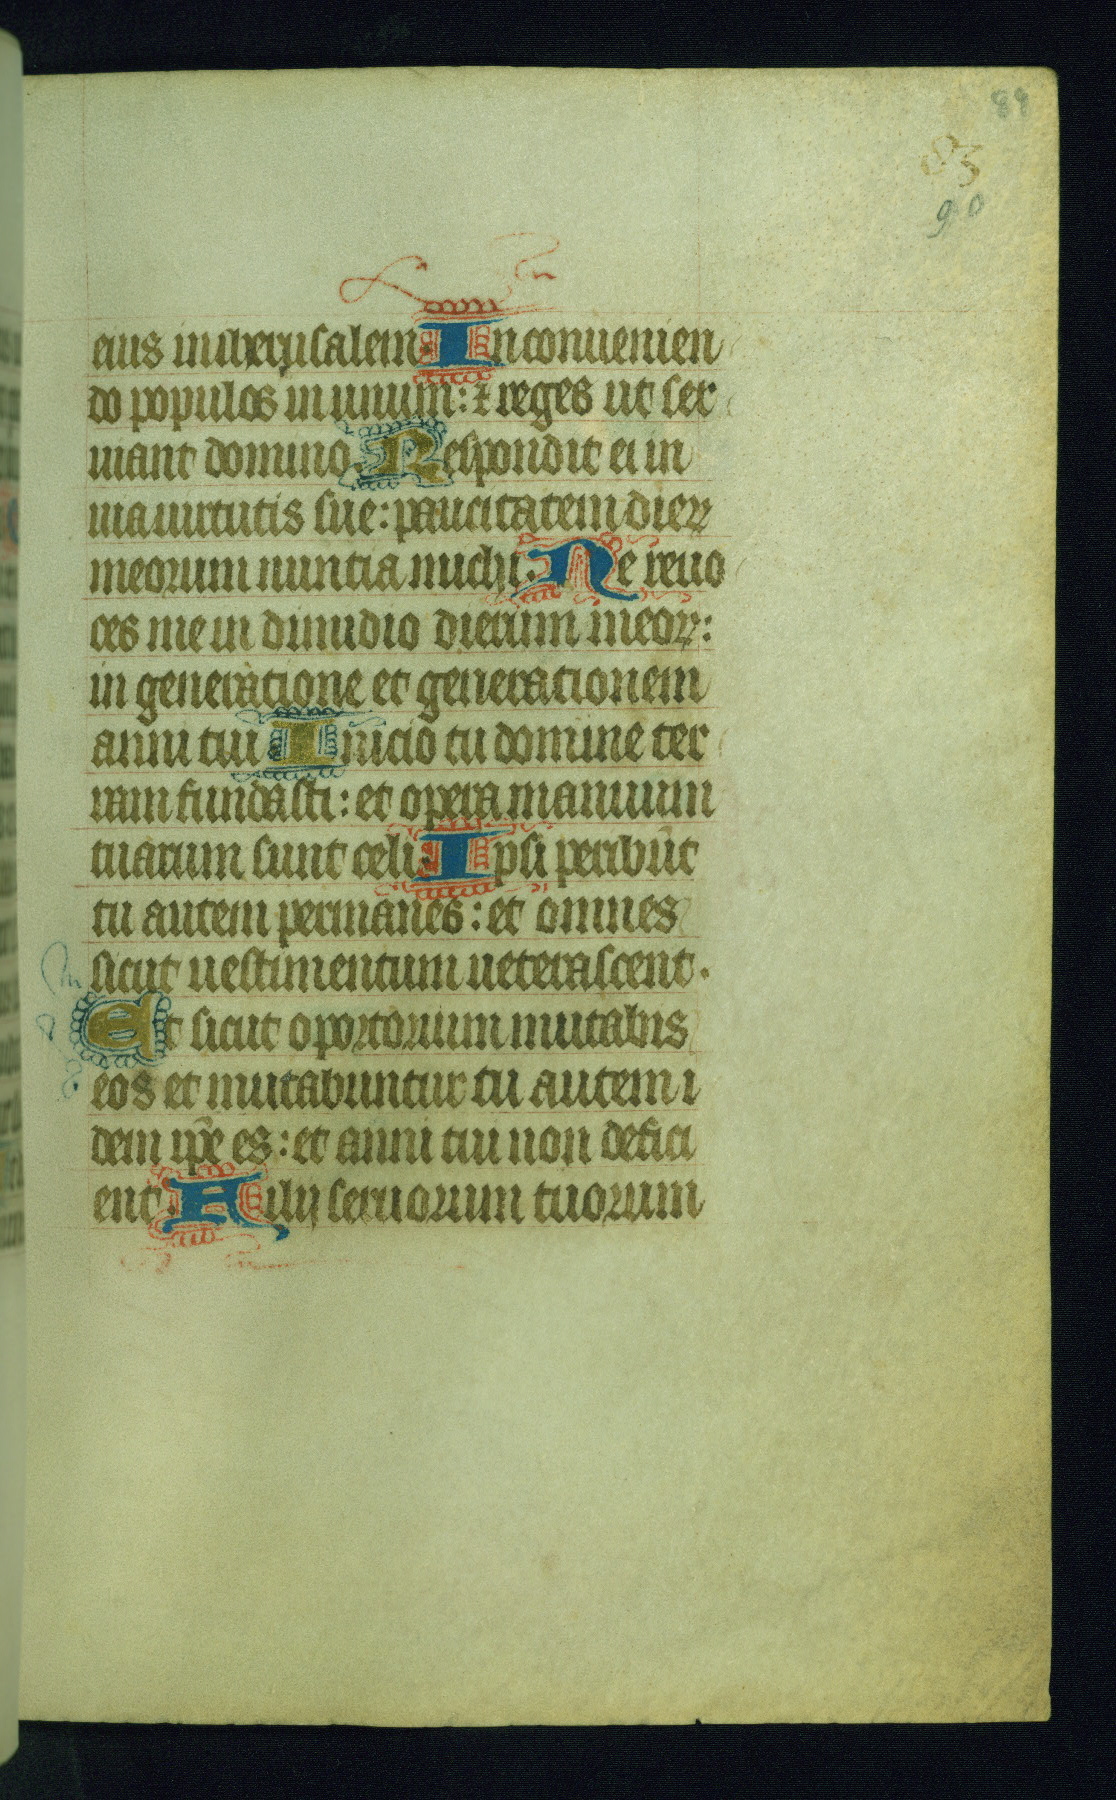 89
83
90
eius in iherusalem. In conuenien
do populos in unum: ⁊ reges ut ser
uiant domino. Respondit ei in
uia uirtutis sue: paucitatem dierꝝ
meorum nuntia michi. Ne reuo
ces me in dimidio dierum meoꝝ:
in generatione et generationem
anni tui Inicio tu domine ter
ram fundasti: et opera manuum
tuarum sunt celi. Ipsi peribūt
tu autem permanes: et omnes
sicut uestimentum ueterascent.
Et sicut oportorium mutabis
eos et mutabuntur tu autem i
dem ip̄e es: et anni tui non defici
ent. Filij seruorum tuorum